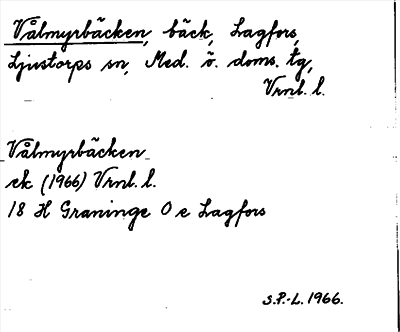 Vålmyrbäcken, bäck, Lagfors,
Ljustorps sn, Med. ö. doms. tg,
Vrnl. l.
Vålmyrbäcken
ek (1966) Vrnl. l.
18 H Graninge O e Lagfors
S.P.-L. 1966.